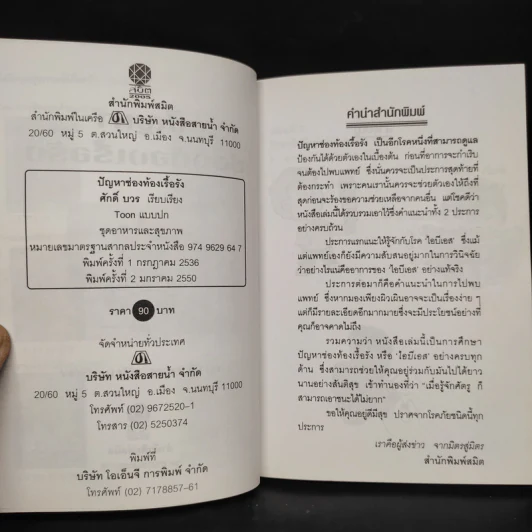 สมิต
2005
สำนักพิมพ์สมิต
สำนักพิมพ์ในเครือ บริษัท หนังสือสายน้ำ จำกัด
20/60 หมู่ 5 ต.สวนใหญ่ อ.เมือง จ.นนทบุรี 11000
ปัญหาช่องท้องเรื้อรัง
ศักดิ์ บวร เรียบเรียง
Toon แบบปก
ชุดอาหารและสุขภาพ
หมายเลขมาตรฐานสากลประจำหนังสือ 974 9629 64 7
พิมพ์ครั้งที่ 1 กรกฎาคม 2536
พิมพ์ครั้งที่ 2 มกราคม 2550
ราคา 90 บาท
จัดจำหน่ายทั่วประเทศ
บริษัท หนังสือสายน้ำ จำกัด
20/60 หมู่ 5 ต.สวนใหญ่ อ.เมือง จ.นนทบุรี 11000
โทรศัพท์ (02) 9672520-1
โทรสาร (02) 5250374
พิมพ์ที่
บริษัท โอเอ็นจี การพิมพ์ จำกัด
โทรศัพท์ (02) 7178857-61
คำนำสำนักพิมพ์
ปัญหาช่องท้องเรื้อรัง เป็นอีกโรคหนึ่งที่สามารถดูแล
ป้องกันได้ด้วยตัวเองในเบื้องต้น ก่อนที่อาการจะกำเริบ
จนต้องไปพบแพทย์ ซึ่งนั้นควรจะเป็นประการสุดท้ายที่
ต้องกระทำ เพราะคนเรานั้นควรจะช่วยตัวเองให้ถึงที่
สุดก่อนจะร้องขอความช่วยเหลือจากคนอื่น แต่โชคดีว่า
หนังสือเล่มนี้ได้รวบรวมเอาไว้ซึ่งคำแนะนำทั้ง 2 ประการ
อย่างครบถ้วน
ประการแรกแนะให้รู้จักกับโรค 'ไอบีเอส' ซึ่งแม้
แต่แพทย์เองก็ยังมีความสับสนอยู่มากในการวินิจฉัย
ว่าอย่างไรแน่คืออาการของ 'ไอบีเอส' อย่างแท้จริง
ประการต่อมาก็คือคำแนะนำในการไปพบ
แพทย์ ซึ่งหากมองเพียงผิวเผินอาจจะเป็นเรื่องง่าย ๆ
แต่ก็มีรายละเอียดอีกมากมายซึ่งจะมีประโยชน์อย่างที่
คุณก็อาจคาดไม่ถึง
รวมความว่า หนังสือเล่มนี้เป็นการศึกษา
ปัญหาช่องท้องเรื้อรัง หรือ 'ไอบีเอส' อย่างครบทุก
ด้าน ซึ่งสามารถช่วยให้คุณอยู่ร่วมกับมันไปได้ยาว
นานอย่างสันติสุข เข้าทำนองที่ว่า "เมื่อรู้จักศัตรู ก็
สามารถเอาชนะได้ไม่ยาก"
ขอให้คุณอยู่ดีมีสุข ปราศจากโรคภัยชนิดนี้ทุก
ประการ
เราคือผู้ส่งข่าว จากมิตรสู่มิตร
สำนักพิมพ์สมิต